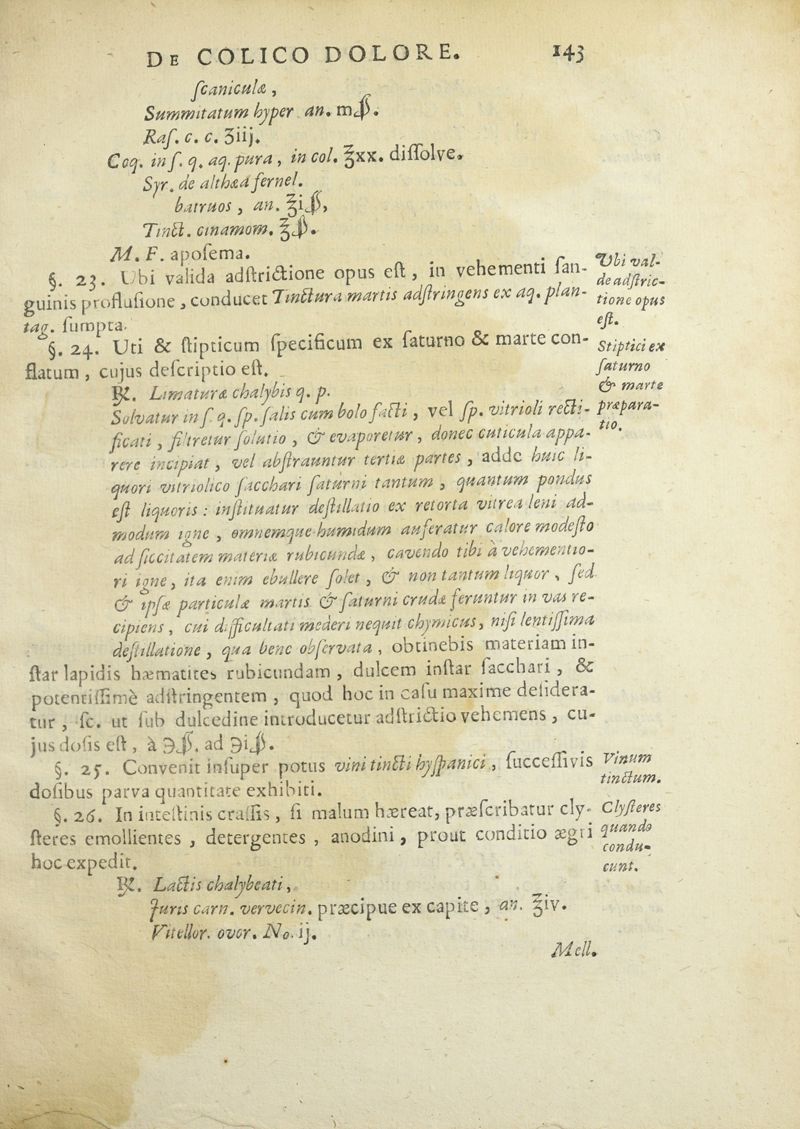 DE COLICO DOLORE. 143
ſcaniculæ,
Summitatum hyper. an. mβ.
Raſ. c. c. ʒiij.
Coq. in ſ. q. aq. pura, in col. ℥xx. diſſolve.
Syr. de althæa fernel.
batruos, an. ℥iβ,
Tinct. cinamom. ℥β.
M. F. apoſema.
§. 23. Ubi valida adſtrictione opus eſt, in vehementi ſan-
guinis profluſione, conducet Tinctura martis adſtringens ex aq. plan-
tag. ſumpta.
Ubi val-
de adſtric-
tione opus
eſt.
§. 24. Uti & ſtipticum ſpecificum ex ſaturno & marte con-
flatum, cujus deſcriptio eſt.
Stiptici ex
ſaturno
& marte
præpara-
tio.
℞. Limaturæ chalybis q. p.
Solvatur in ſ. q. ſp. ſalis cum bolo facti, vel ſp. vitrioli recti-
ficati, filtretur ſolutio, & evaporetur, donec cuticula appa-
rere incipiat, vel abſtrauntur tertiæ partes, adde huic li-
quori vitriolico ſacchari ſaturni tantum, quantum pondus
eſt liquoris: inſtituatur deſtillatio ex retorta vitrea leni ad-
modum igne, omnemque humidum auferatur calore modeſto
ad ſiccitatem materiæ rubicundæ, cavendo tibi à vehementio-
ri igne, ita enim ebullere ſolet, & non tantum liquor, ſed
& ipſæ particulæ martis & ſaturni crudæ feruntur in vas re-
cipiens, cui difficultati mederi nequit chymicus, niſi lentiſſima
deſtillatione, qua bene obſervata, obtinebis materiam in-
ſtar lapidis hæmatites rubicundam, dulcem inſtar ſacchari, &
potentiſſimè adſtringentem, quod hoc in caſu maxime deſidera-
tur, ſc. ut ſub dulcedine introducetur adſtrictio vehemens, cu-
jus doſis eſt, à ℈β. ad ℈iβ.
§. 25. Convenit inſuper potus vini tincti hyſpanici, ſucceſſivis
doſibus parva quantitate exhibiti.
Vinum
tinctum.
§. 26. In inteſtinis craſſis, ſi malum hæreat, præſcribatur cly-
ſteres emollientes, detergentes, anodini, prout conditio ægri
hoc expedit.
Clyſteres
quando
condu-
cunt.
℞. Lactis chalybeati,
Juris carn. vervecin. præcipue ex capite, an. ℥iv.
Vitellor. ovor. No. ij.
Mell.